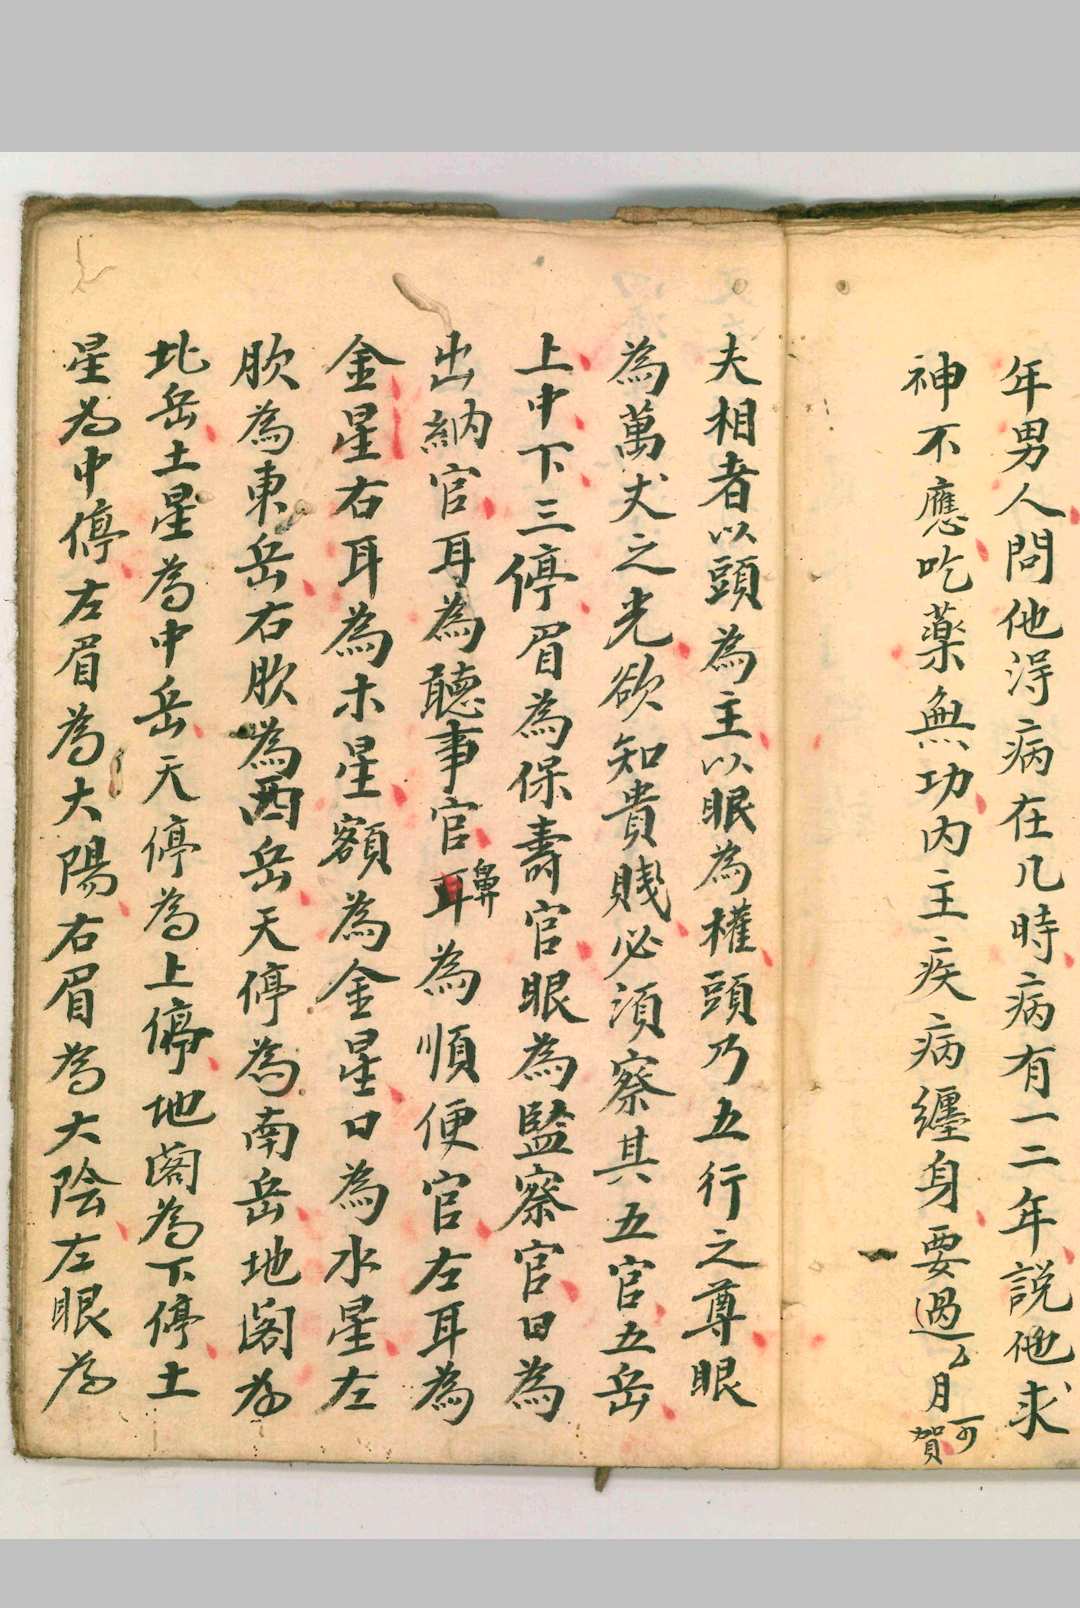 年男人問他淂病在几時病有一二年説他求
神不應吃藥無功内主疾病纏身要過乙月可賀
夫相者以頭為主以眼為權頭乃五行之尊眼
為萬丈之光欲知貴賤必須察其五官五岳
上中下三停眉為保壽官眼為監察官口為
出納官耳為聽事官耳鼻為順便官左耳為
金星右耳為木星額為金星口為水星左
肷為東岳右肷為西岳天停為南岳地阁为
北岳土星為中岳天停為上停地阁為下停土
星為中停左眉為大陽右眉為大陰左眼為